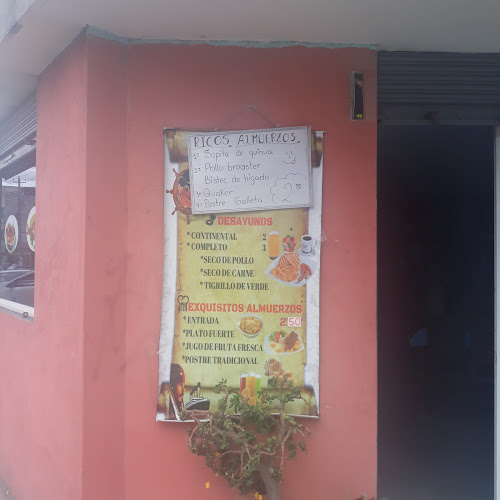 RICOS ALMUERZOS.
1= Sopita de quinua
2= Pollo broaster
Bistec de higado
3= Quaker
4= Postre: Galleta
2"
DESAYUNOS
*CONTINENTAL 2
*COMPLETO 3
*SECO DE POLLO
*SECO DE CARNE
*TIGRILLO DE VERDE
EXQUISITOS ALMUERZOS
*ENTRADA 2.50
*PLATO FUERTE
*JUGO DE FRUTA FRESCA
*POSTRE TRADICIONAL